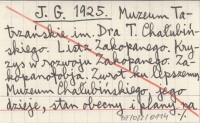 J. G. 1925. Muzeum Ta-
trzańskie im. Dra T. Chałubiń-
skiego. Listy Zakopanego. Kry-
zys w rozwoju Zakopanego. Za-
kopanotobja. Zwrot ku lepszemu.
Muzeum Chałubińskiego, jego
dzieje, stan obecny i plany na